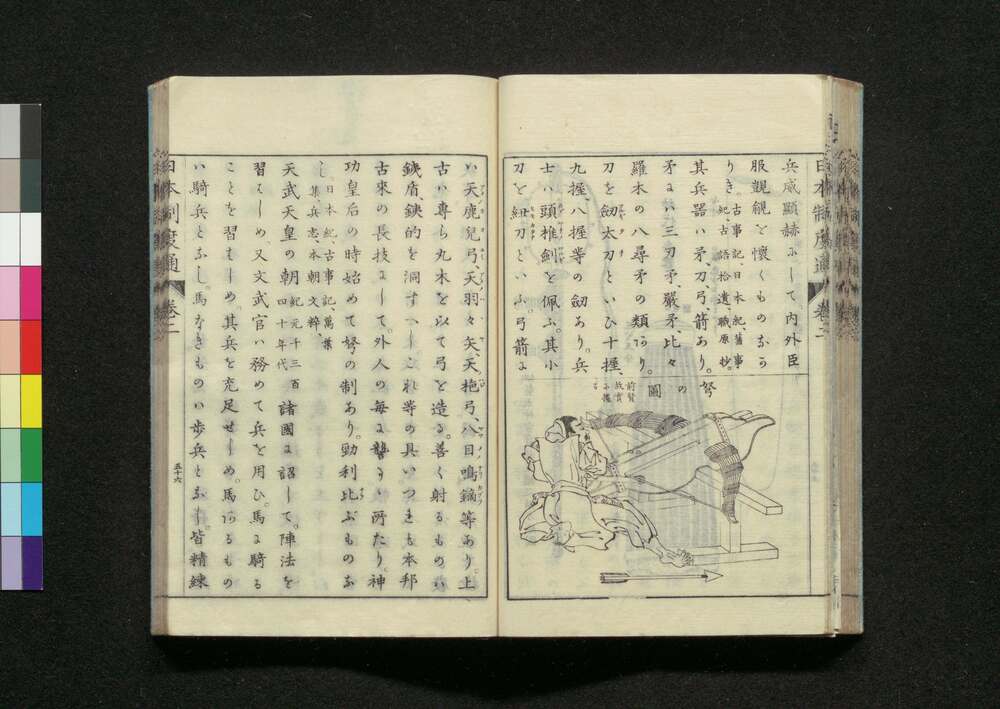 日本制度通
卷二
兵威顯赫にして、内外臣
服覬覦を懷くものなか
りき。古事記、日本紀、舊事
紀、古語拾遺、職原抄。
其兵器ハ、矛、刀、弓、箭あり。
矛にハ、三刃矛、嚴矛、比々
羅木の八尋矛の類あり。
刀を劔太刀といひ、十握、
九握、八握等の劔あり。兵
士ハ、頭椎劍を佩ふ。其小
刀を紐刀といふ。弓箭に
弩の圖
前賢
故實
ハ、天鹿兒弓、天羽々矢、天梔弓、八目鳴鏑等あり。上
古ハ、專ら丸木を以て弓を造る。善く射るものハ、
鐵盾、鐵的を洞す。へしこれ等の具ハ、いつれも本邦
古來の長技にして、外人の毎に讋るゝ所たり。神
功皇后の時始めて弩の制あり。勁利比ぶものな
し。日本紀、古事記、萬葉
集、兵志、本朝文粹、
天武天皇の朝紀元千三百
四十年代諸國に詔して、陣法を
習はしめ、又文武官ハ、務めて兵を用ひ、馬に騎る
ことを習はしめ、其兵を充足せしめ、馬あるもの
ハ騎兵となし。馬なきものハ步兵となし。皆精練
日本制度通
卷二
五十六